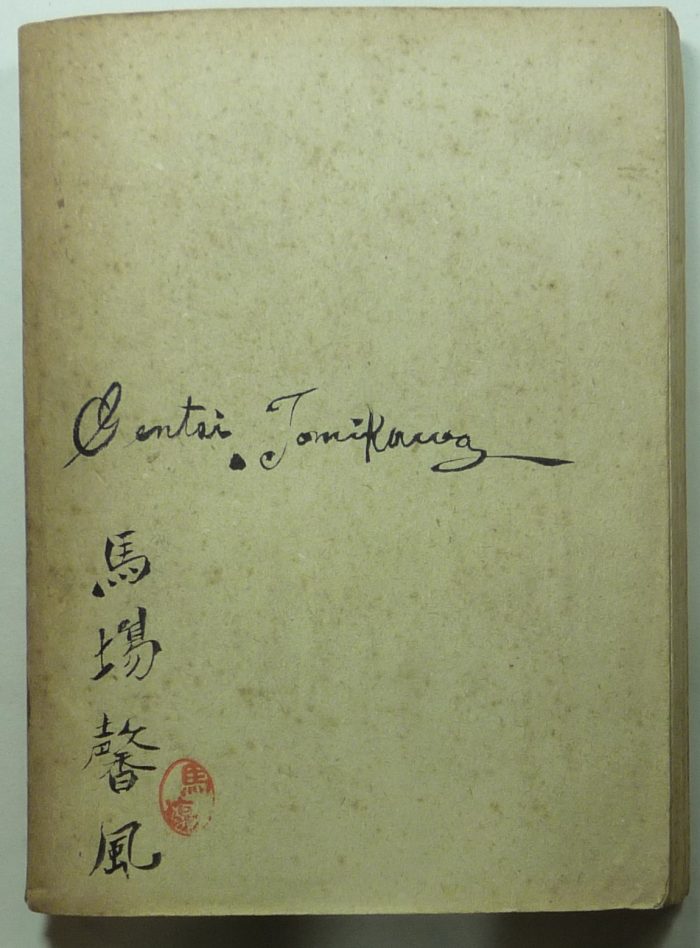 Gentai. Tomikawa
馬場馨風
馬場